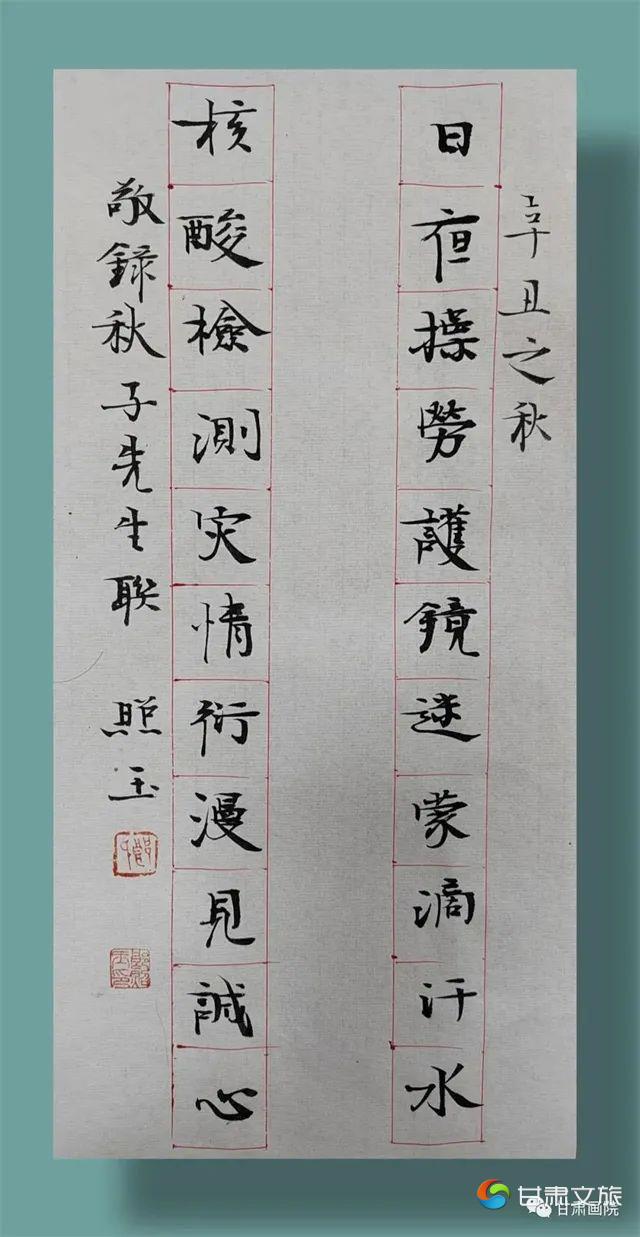 辛丑之秋
日夜操勞護鏡迷蒙滴汗水
核酸檢測灾情衍漫見誠心
敬録秋子先生聯 照玉
甘肃文旅
甘肃画院